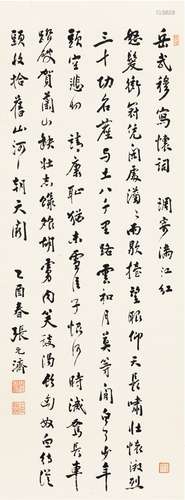 岳武穆寫懷詞 調寄滿江紅
怒髮衝冠凭闌處瀟瀟雨歇擡望眼仰天長嘯壯懷激烈
三十功名塵與土八千里路雲和月莫等閒白了少年
頭空悲切 靖康恥猶未雪臣子恨何時滅駕長車
踏破賀蘭山缺壯志饑餐胡虜肉笑談渴飲匈奴血待從
頭收拾舊山河朝天闕
乙酉春張元濟